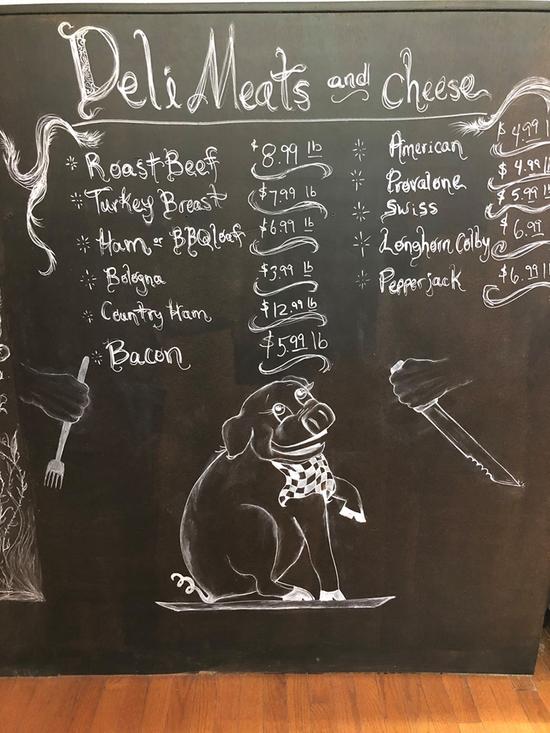 Deli Meats and Cheese
Roast Beef $8.99 lb
Turkey Breast $7.99 lb
Ham or BBQ loaf $6.99 lb
Bologna $3.99 lb
Country Ham $12.99 lb
Bacon $5.99 lb
American $4.99 l
Provalone $4.99 l
Swiss $5.99 l
Longhorn Colby $6.99
Pepper jack $6.99 l